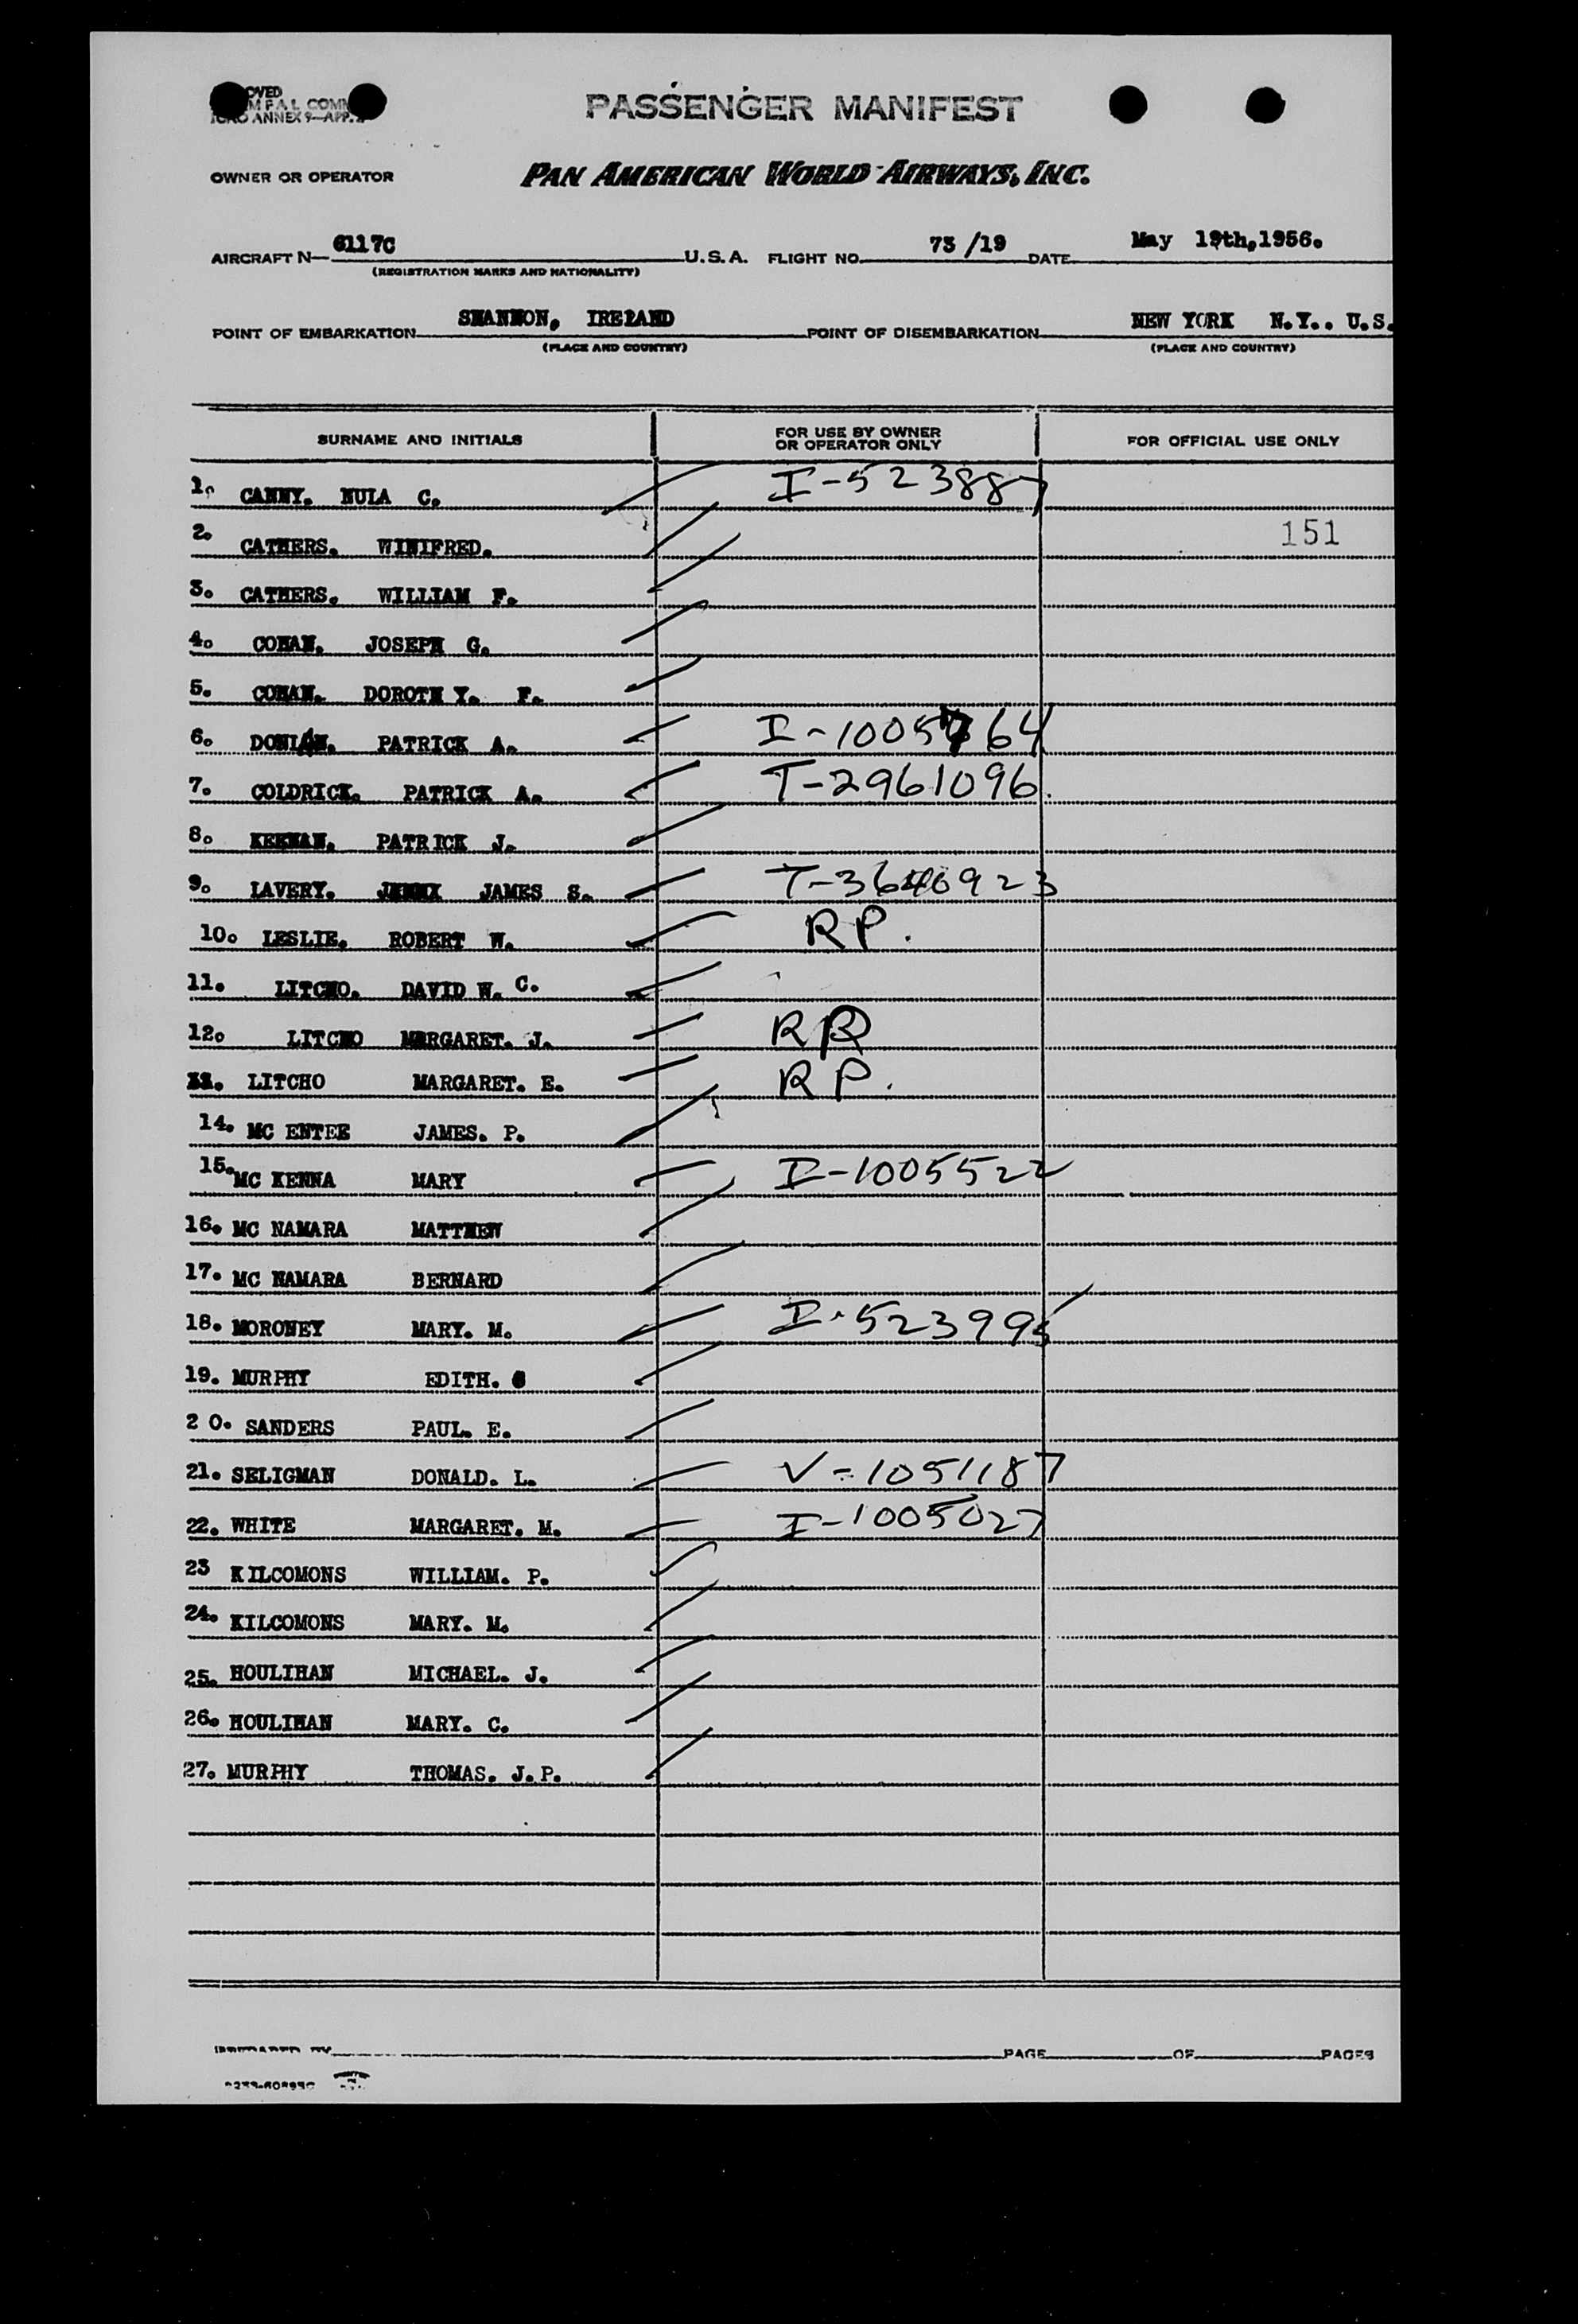 OVED
M F A L COMM
ICAO ANNEX 9—APP. 2
PASSENGER MANIFEST
OWNER OR OPERATOR PAN AMERICAN WORLD AIRWAYS, INC.
AIRCRAFT N— 6117C U.S.A. FLIGHT NO. 73 /19 DATE May 19th,1956.
(REGISTRATION MARKS AND NATIONALITY)
POINT OF EMBARKATION SHANNON, IRELAND POINT OF DISEMBARKATION NEW YORK N.Y.. U.S.
(PLACE AND COUNTRY) (PLACE AND COUNTRY)
SURNAME AND INITIALS FOR USE BY OWNER OR OPERATOR ONLY FOR OFFICIAL USE ONLY
1. CANNY. NULA C. I-523887
2. CATHERS. WINIFRED. 151
3. CATHERS. WILLIAM F.
4. COHAN. JOSEPH G.
5. COHAN. DOROTH Y. F.
6. DONIAN. PATRICK A. I-1005764
7. COLDRICK. PATRICK A. T-2961096.
8. KEENAN. PATRICK J.
9. LAVERY. JAMES S. T-3640923
10. LESLIE. ROBERT W. RP.
11. LITCHO. DAVID W. C.
12. LITCHO MARGARET. J. RP
LITCHO MARGARET. E. RP.
14. MC ENTEE JAMES. P.
15. MC KENNA MARY I-1005522
16. MC NAMARA MATTHEW
17. MC NAMARA BERNARD
18. MORONEY MARY. M. I-523995
19. MURPHY EDITH.
2 0. SANDERS PAUL. E.
21. SELIGMAN DONALD. L. V-1051187
22. WHITE MARGARET. M. I-1005027
23 KILCOMONS WILLIAM. P.
24. KILCOMONS MARY. M.
25. HOULIHAN MICHAEL. J.
26. HOULIHAN MARY. C.
27. MURPHY THOMAS. J.P.
PREPARED BY PAGE OF PAGES